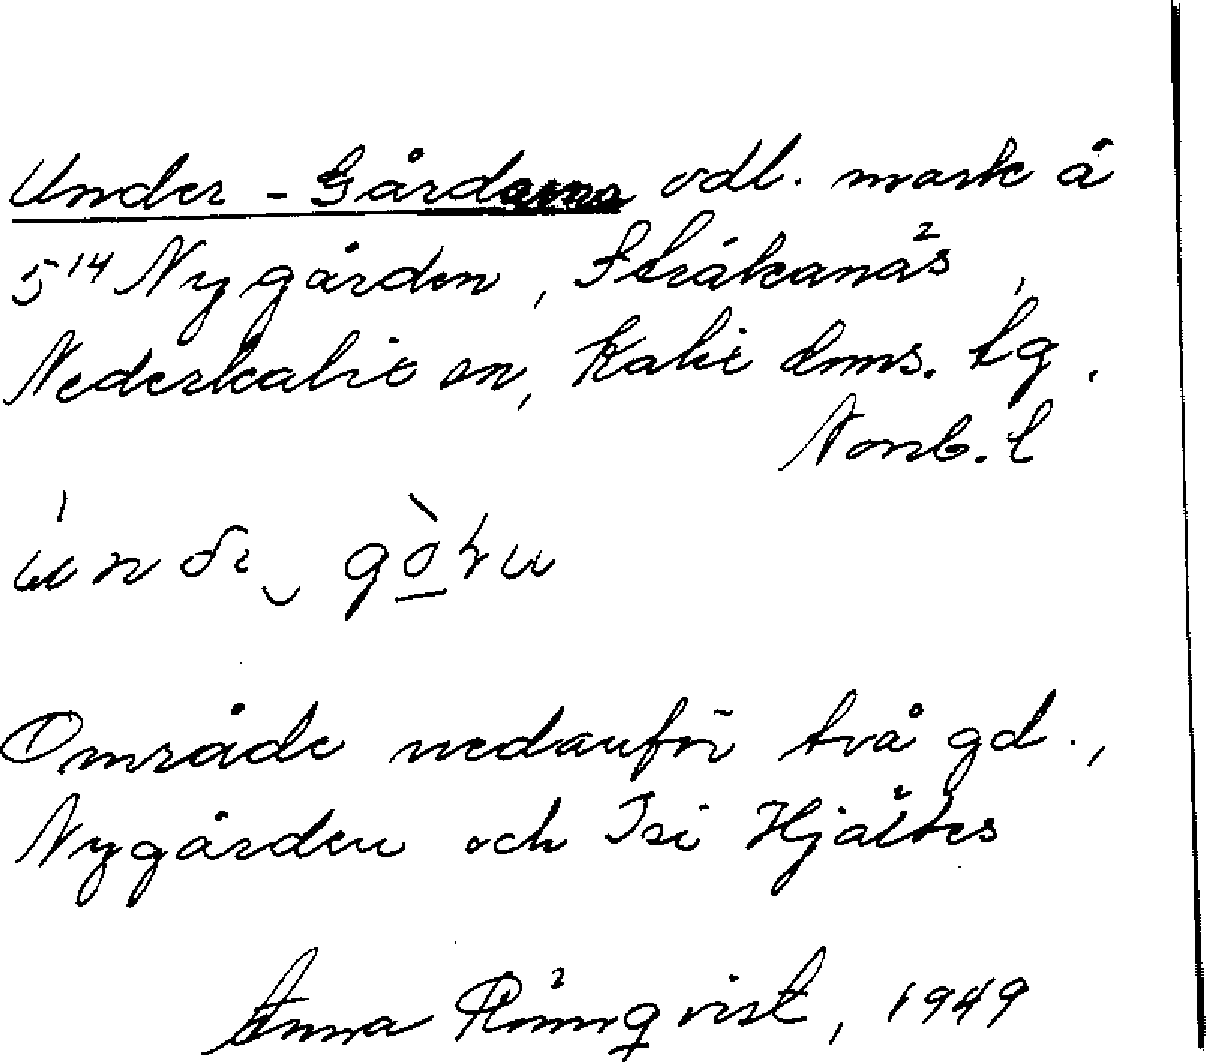 Under-Gårdarna odl. mark å
5¹⁴ Nygården, Stråkanäs,
Nederkalix sn, Kalix doms. tg.
Norrb. l
Område nedanför två gd.,
Nygården och Isi Hjältes
Anna Rönnqvist, 1949